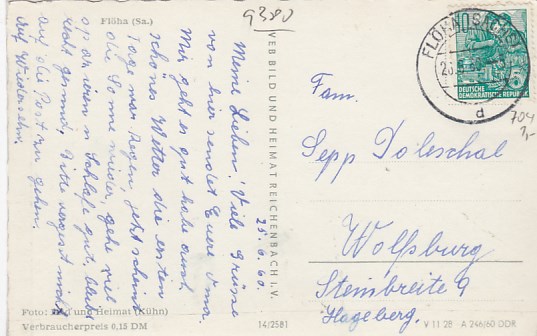 Flöha (Sa.)
9380
25. 6. 60.
Meine Lieben! Viele Grüße
von hier sendet Euere Oma.
Mir geht es gut habe auch
schönes Wetter die ersten
Tage war Regen, jetzt scheint
die Sonne wieder, gehe viel
spazieren u. Schlafe gut.
recht gesund, Bitte vergesst nicht
auf die Post zu gehen.
Auf Wiedersehn.
Foto: Bild und Heimat (Kühn)
Verbraucherpreis 0,15 DM
VEB BILD UND HEIMAT REICHENBACH I. V.
14/2581
FLÖHA (SACHS)
d
DEUTSCHE
DEMOKRATISCHE REPUBLIK
5
704
1,-
Fam.
Sepp Poleschal
Wolfsburg
Steinbreite 9
Hageberg.
V 11 28 A 246/60 DDR